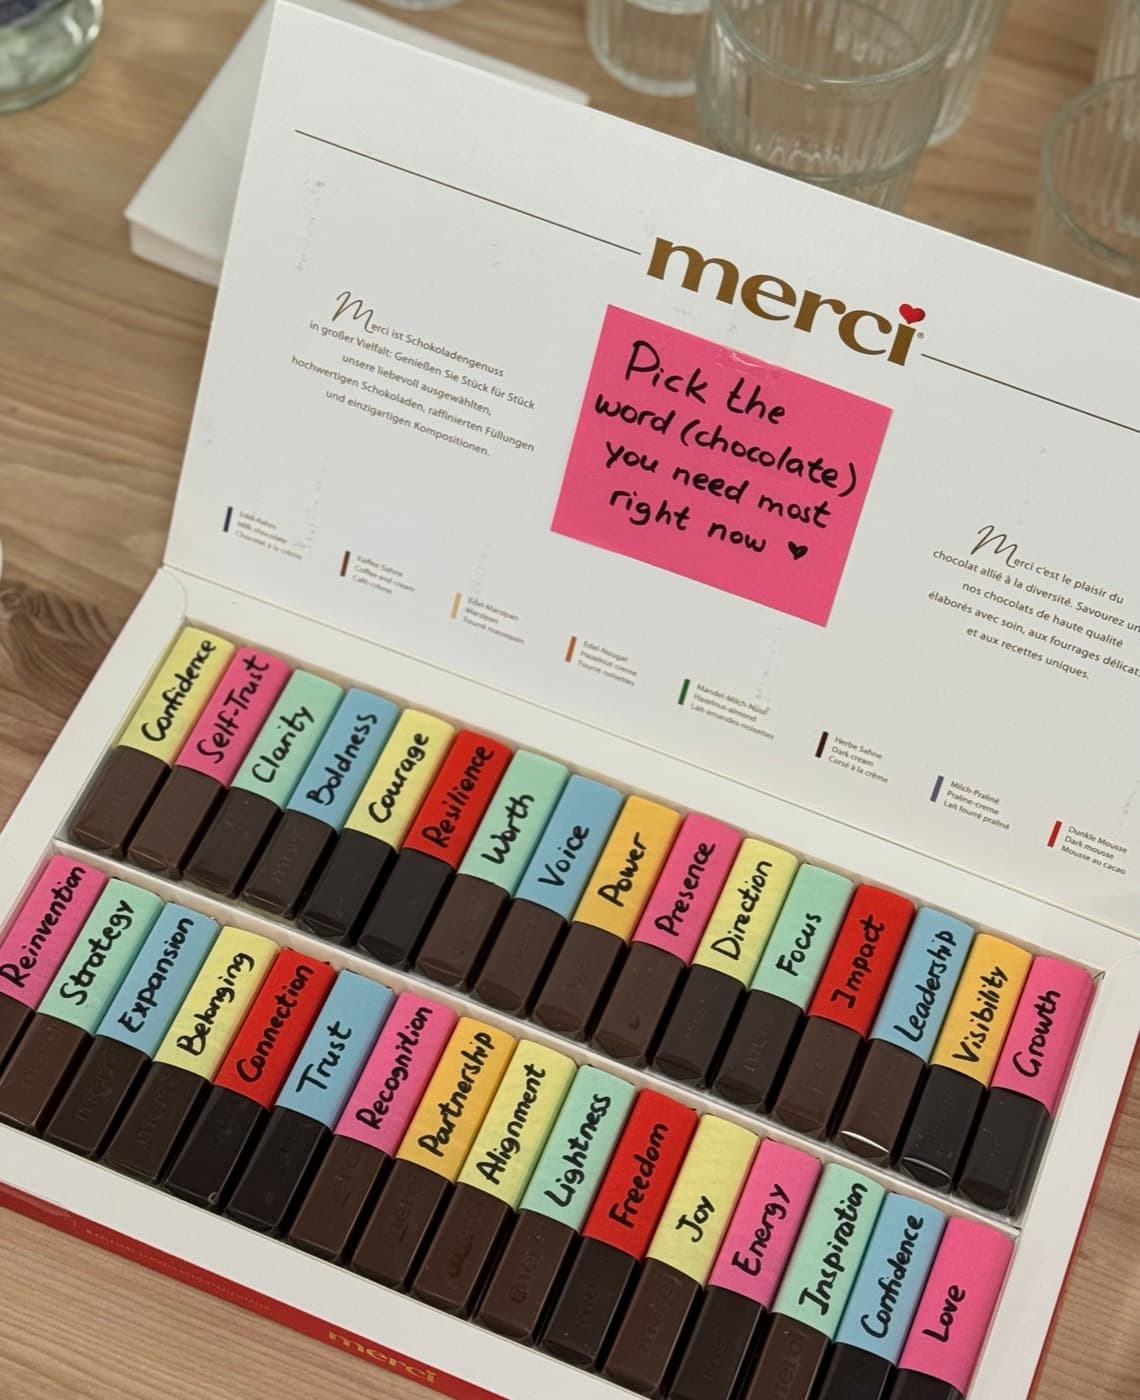 merci
Pick the
word (chocolate)
you need most
right now ♥
Merci ist Schokoladengenuss
in großer Vielfalt: Genießen Sie Stück für Stück
unsere liebevoll ausgewählten,
hochwertigen Schokoladen, raffinierten Füllungen
und einzigartigen Kompositionen.
Merci c'est le plaisir du
chocolat allié à la diversité. Savourez un
nos chocolats de haute qualité
élaborés avec soin, aux fourrages délicat
et aux recettes uniques.
Edel-Rahm
Milk chocolate
Chocolat à la crème
Kaffee-Sahne
Coffee and cream
Café-crème
Edel-Marzipan
Marzipan
Fourré massepain
Edel-Nougat
Hazelnut-creme
Fourré noisettes
Mandel-Milch-Nuss
Hazelnut-almond
Lait-amandes-noisettes
Herbe Sahne
Dark cream
Corsé à la crème
Milch-Praliné
Praline-creme
Lait fourré praliné
Dunkle Mousse
Dark mousse
Mousse au cacao
Confidence
Self-Trust
Clarity
Boldness
Courage
Resilience
Worth
Voice
Power
Presence
Direction
Focus
Impact
Leadership
Visibility
Growth
Reinvention
Strategy
Expansion
Belonging
Connection
Trust
Recognition
Partnership
Alignment
Lightness
Freedom
Joy
Energy
Inspiration
Confidence
Love
merci